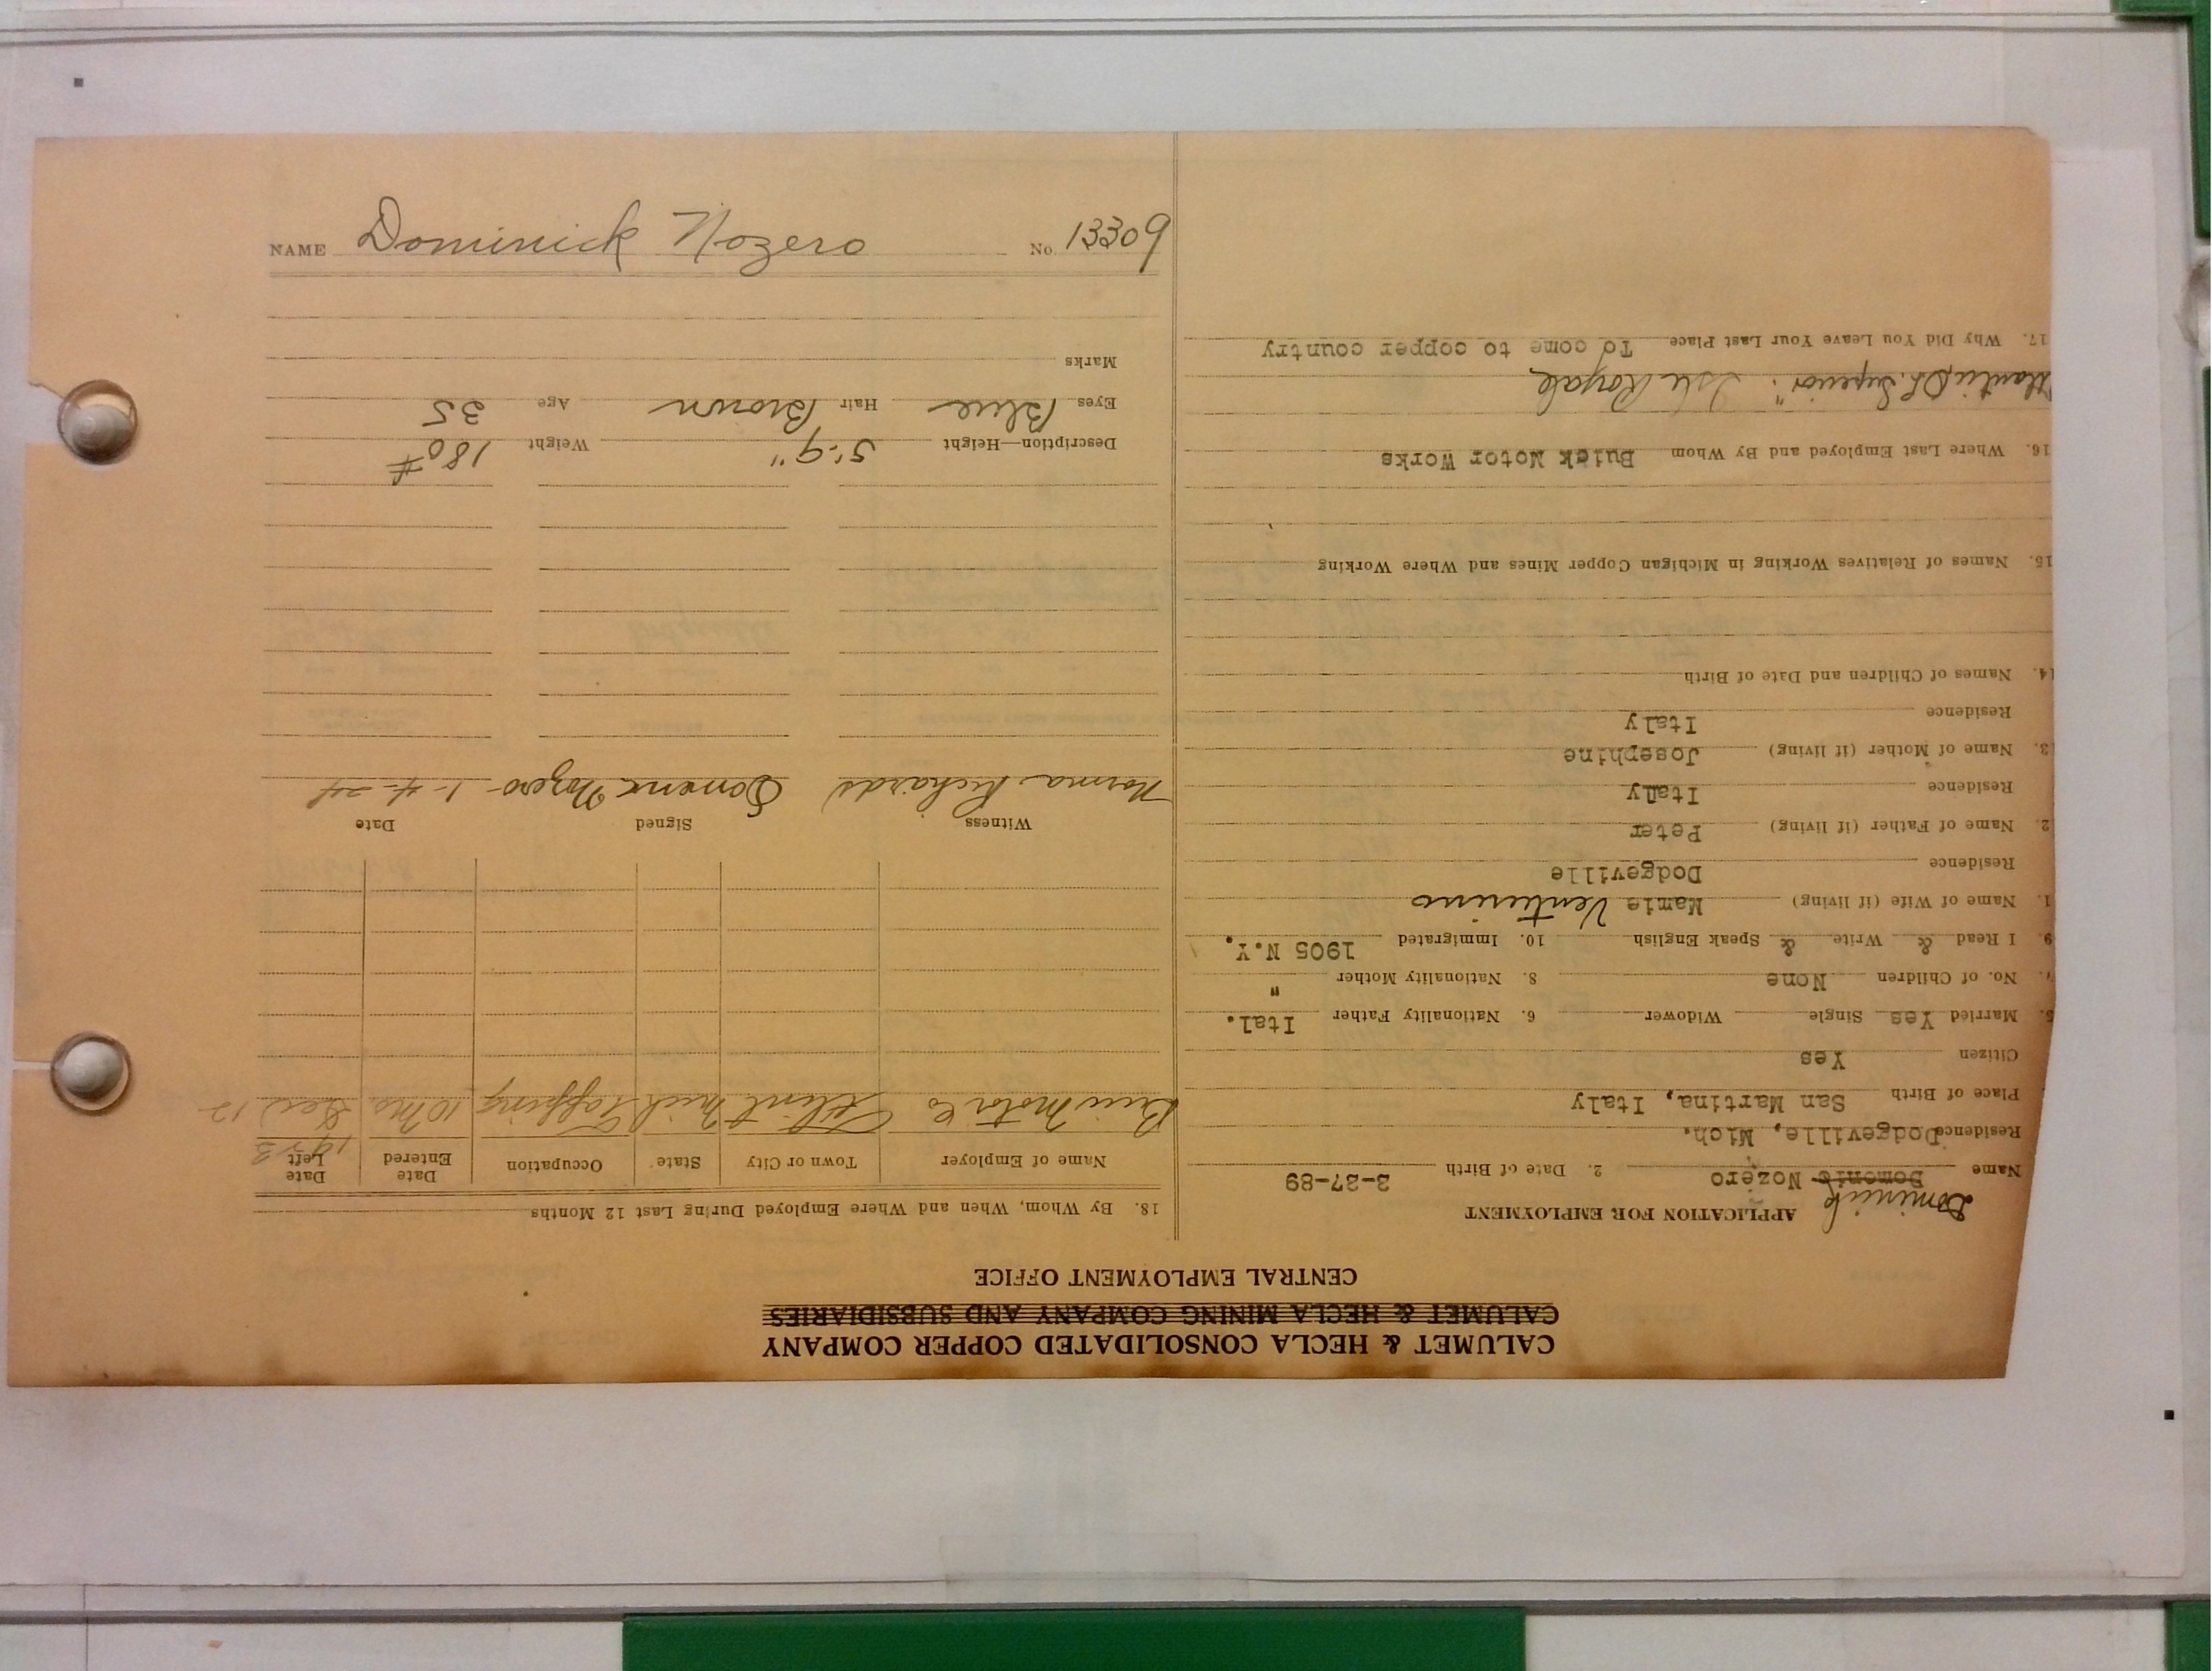 CALUMET & HECLA CONSOLIDATED COPPER COMPANY
CALUMET & HECLA MINING COMPANY AND SUBSIDIARIES
CENTRAL EMPLOYMENT OFFICE
APPLICATION FOR EMPLOYMENT
Dominick
Name Domenic Nozero 2. Date of Birth 3-27-89
Residence Dodgeville, Mich.
Place of Birth San Martina, Italy
Citizen Yes
5. Married Yes Single Widower 6. Nationality Father Ital.
7. No. of Children None 8. Nationality Mother "
9. I Read & Write & Speak English 10. Immigrated 1905 N.Y.
1. Name of Wife (if living) Mamie Venturino
Residence Dodgeville
2. Name of Father (if living) Peter
Residence Italy
3. Name of Mother (if living) Josephine
Residence Italy
14. Names of Children and Date of Birth
15. Names of Relatives Working in Michigan Copper Mines and Where Working
16. Where Last Employed and By Whom Buick Motor Works
Atlantic, Superior. Isle Royale
17. Why Did You Leave Your Last Place To come to copper country
18. By Whom, When and Where Employed During Last 12 Months
Name of Employer Town or City State Occupation Date Entered Date Left
1923
Motor Co Flint Mich 10 Mo Dec 12
Witness Signed Date
Norma Richards Domenic Nozero 1-4-24
Description—Height 5'-9" Weight 180#
Eyes Blue Hair Brown Age 35
Marks
NAME Dominick Nozero No. 13309